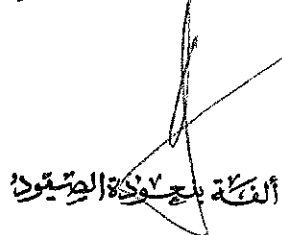 ألفة بنعودة الصيود